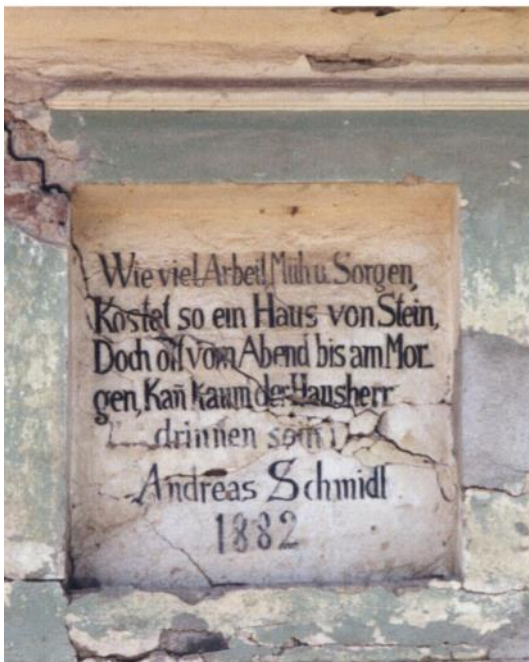 Wie viel Arbeit, Müh u. Sorgen,
Kostet so ein Haus von Stein,
Doch oft vom Abend bis am Mor-
gen, Kan̄ kaum der Hausherr
drinnen sein
Andreas Schmidt
1882